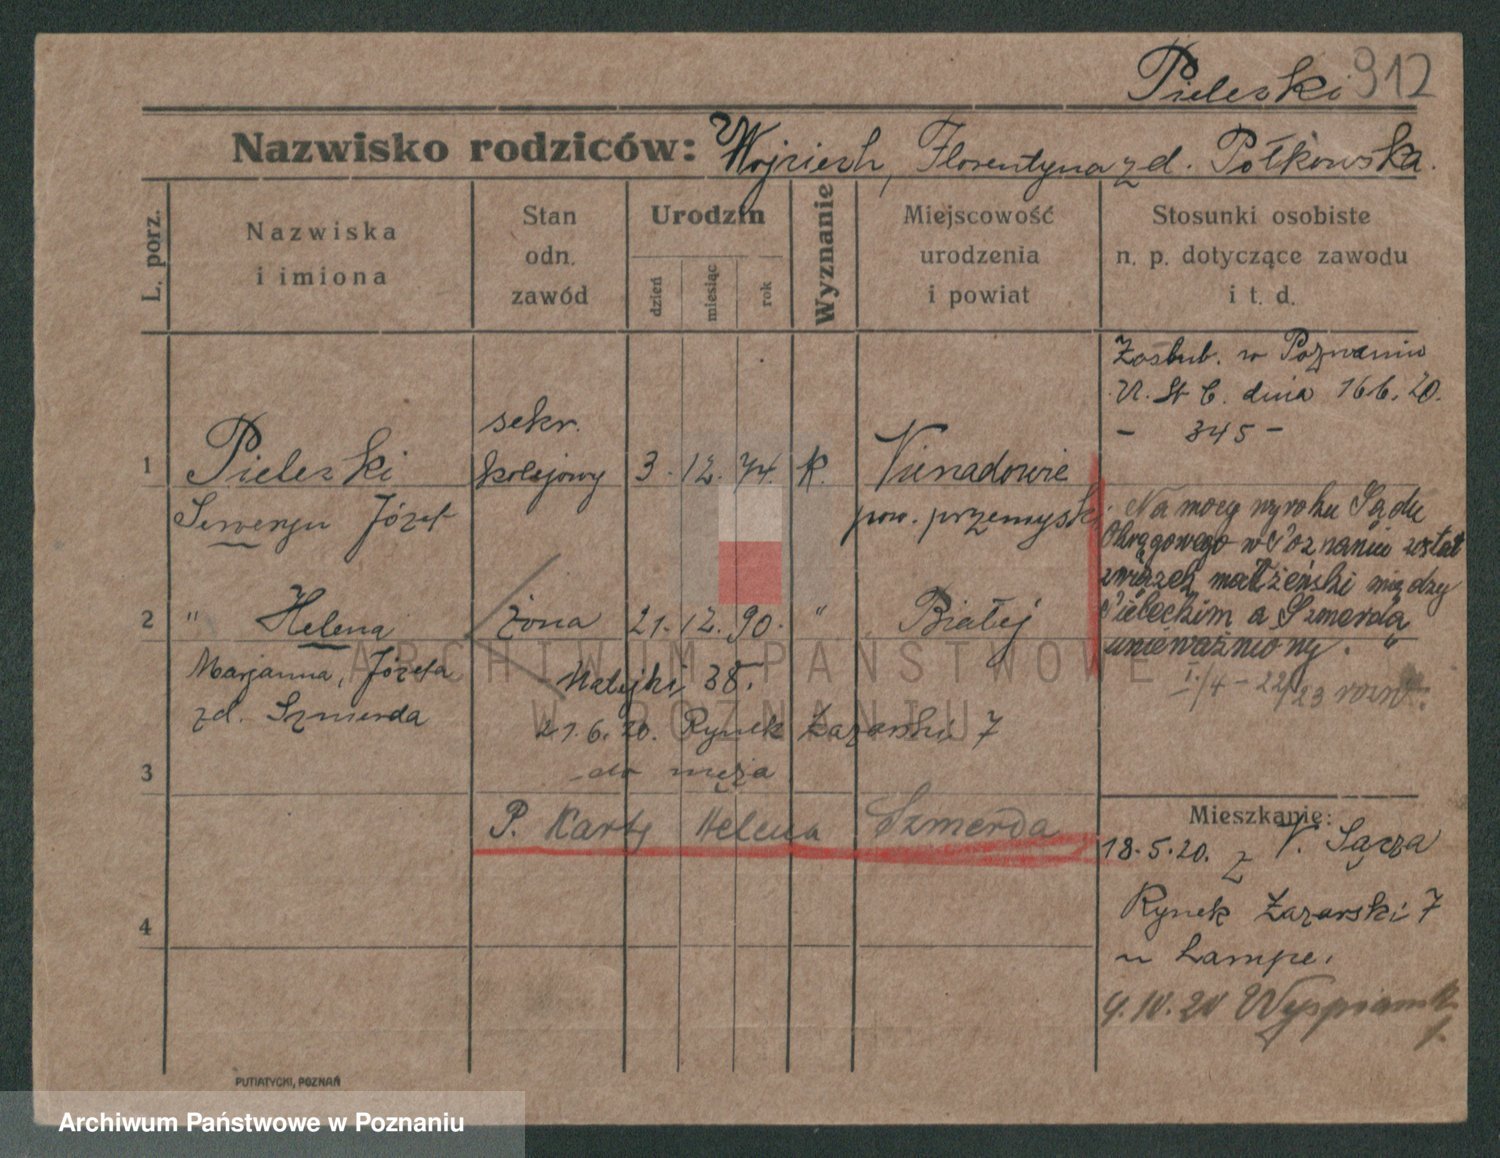 Pieleski 912
Nazwisko rodziców: Wojciech, Florentyna zd. Połkowska.
L. porz.
Nazwiska
i imiona
Stan
odn.
zawód
Urodzin
dzień
miesiąc
rok
Wyznanie
Miejscowość
urodzenia
i powiat
Stosunki osobiste
n. p. dotyczące zawodu
i t. d.
Zaślub. w Poznaniu
U. St C. dnia 16.6.20.
- 345 -
1 Pieleski sekr. kolejowy 3. 12. 74. K.
Seweryn Józef
pow. przemyski
Na mocy wyroku Sądu
Okręgowego w Poznaniu został
związek małżeński między
Pieleckim a Szmerda
unieważniony. "
I./4 - 22/23
2 " Helena żona 21. 12. 90. " Białej
Marjanna, Józefa
zd. Szmerda
Matejki 38.
21.6.20. Rynek Łazarski 7
do męża
3
P. Kartę Helena Szmerda
4
Mieszkanie:
18.5.20. z N. Sącza
Rynek Łazarski 7
u Lampe.
PUTIATYCKI, POZNAŃ
ARCHIWUM PAŃSTWOWE
W POZNANIU
Archiwum Państwowe w Poznaniu